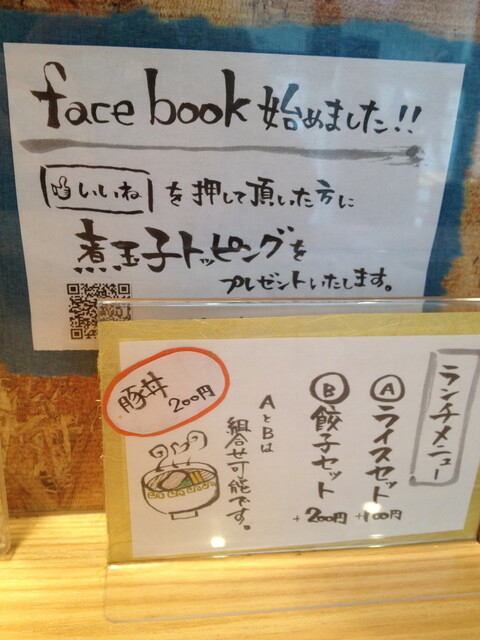 face book 始めました!!
いいね を押して頂いた方に
煮玉子トッピングを
プレゼントいたします。
ランチメニュー
Ⓐライスセット +100円
Ⓑ餃子セット +200円
AとBは
組合せ可能です。
豚丼
200円